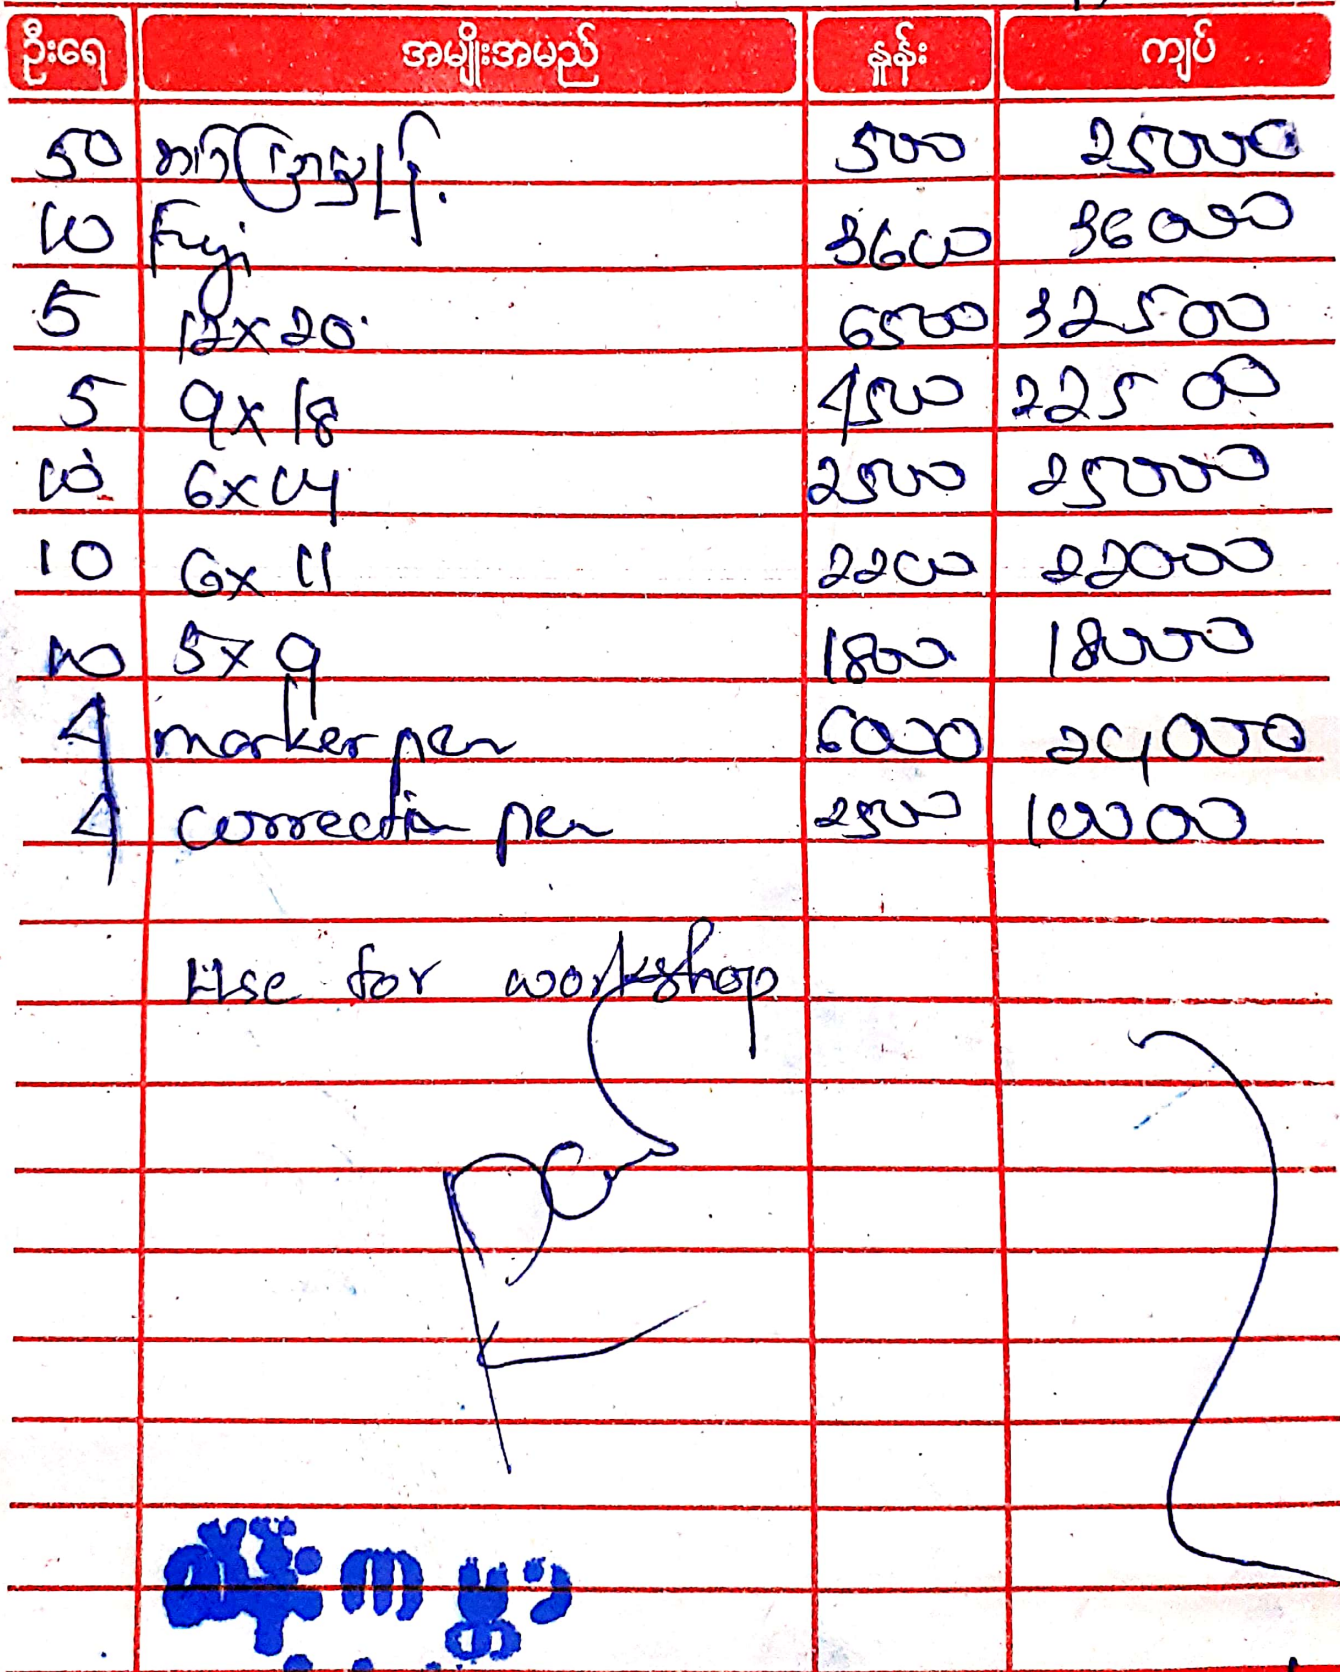 ဦးရေ အမျိုးအမည် နှုန်း ကျပ်
50 500 25000
10 Fuji 3600 36000
5 12x20 6500 32500
5 9x18 4500 22500
10 6x14 2500 25000
10 6x11 2200 22000
10 5x9 1800 18000
4 marker pen 6000 24,000
4 correction pen 2500 10000
Use for workshop
စိန်ကမ္ဘာ